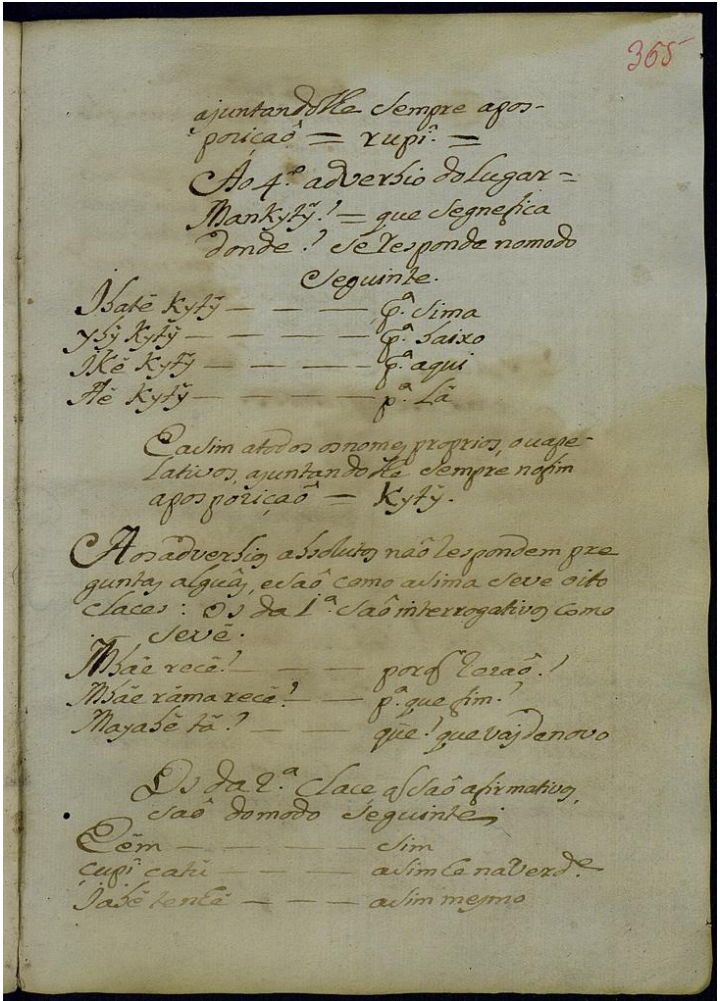 365
ajuntandolhe sempre apos-
poziçaõ = rupi =
Ao 4.º adverbio do Lugar =
Mankytỹ? = que segnefica
donde? se responde nomodo
seguinte.
Ibatẽ Kytỹ — — — — p.ª sima
ybỹ Kytỹ — — — — p.ª baixo
IKẽ Kytỹ — — — — p.ª aqui
Aẽ Kytỹ — — — — p.ª Lâ
E asim atodos osnomes proprios, ou ape-
lativos, ajuntandolhe sempre nofim
apospoziçaõ = Kytỹ.
Aosadverbios absolutos naõ respondem pre
guntas alguãs, esaõ como asima seve oito
claces: Os da 1.ª saõ interrogativos como
sevê.
Mbãe recẽ? — — — porq̃ rezaõ?
Mbãe rãma recẽ? — — p.ª que fim?
Mayabẽ tã? — — — quẽ? que vaj denovo
Os da 2.ª clace q̃ saõ afirmativos,
saõ domodo seguinte;
Eẽm — — — — sim
çupĩ catũ — — — asim he naverd.e
Jabẽ tenhẽ — — — asim mesmo